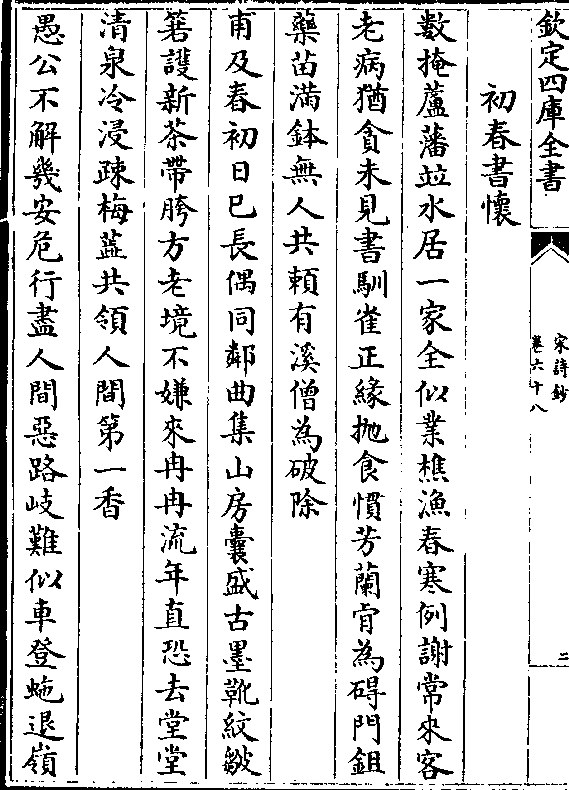 欽定四庫全書
宋詩鈔
卷六十八
二
初春書懷
數掩蘆藩竝水居一家全似業樵漁春寒例謝常來客
老病猶貪未見書馴雀正緣抛食慣芳蘭肯為碍門鉏
藥苗滿鉢無人共頼有溪僧為破除
甫及春初日已長偶同鄰曲集山房囊盛古墨靴紋皺
箬護新茶帶胯方老境不嫌來冉冉流年直恐去堂堂
清泉冷浸疎梅蘂共領人間第一香
愚公不解幾安危行盡人間惡路岐難似車登蛇退嶺